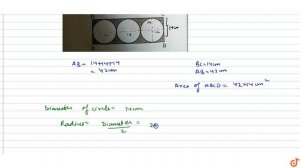 14cm
A B
AB = 14+14+14
= 42cm
BC = 14cm
AB = 42cm
Area of ABCD = 42x14cm²
Diameter of circle = 14cm
Radius = Diameter/2 =